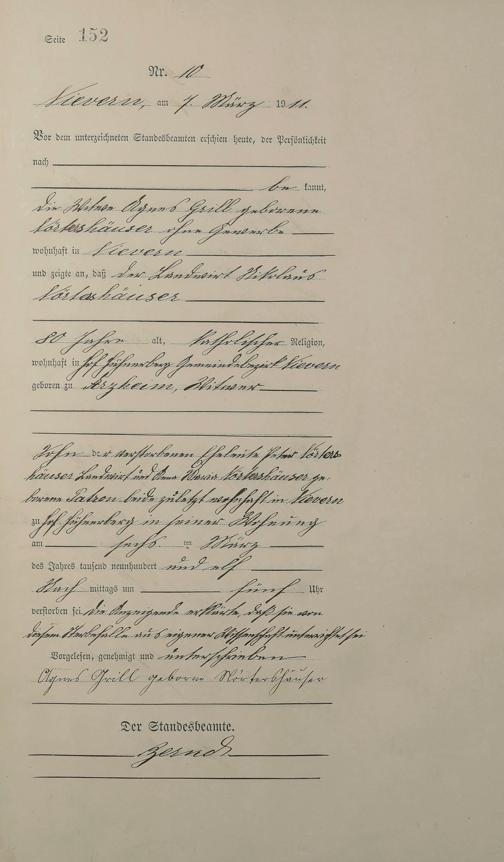 Seite 152
Nr. 10
Nievern, am 7. März 1911.
Vor dem unterzeichneten Standesbeamten erschien heute, der Persönlichkeit
nach
be kannt,
die Witwe Agnes Grill geborene
Wörtershäuser ohne Gewerbe
wohnhaft in Nievern
und zeigte an, daß der Landwirt Nikolaus
Wörtershäuser
80 Jahre alt, katholischer Religion,
wohnhaft in Hof Hühnerberg Gemeindebezirk Nievern
geboren zu Arzheim, Witwer
Sohn der verstorbenen Eheleute Peter Wörters-
häuser Landwirt und Anna Maria Wörtershäuser ge-
borene beide zuletzt wohnhaft in Nievern
zu Hof Hühnerberg in seiner Wohnung
am sechs ten März
des Jahres tausend neunhundert und elf
Nach mittags um fünf Uhr
verstorben sei. Die Anzeigende erklärte, daß sie von
diesem Sterbefalle aus eigener Wissenschaft unterrichtet sei
Vorgelesen, genehmigt und unterschrieben
Agnes Grill geborne Wörtershäuser
Der Standesbeamte.